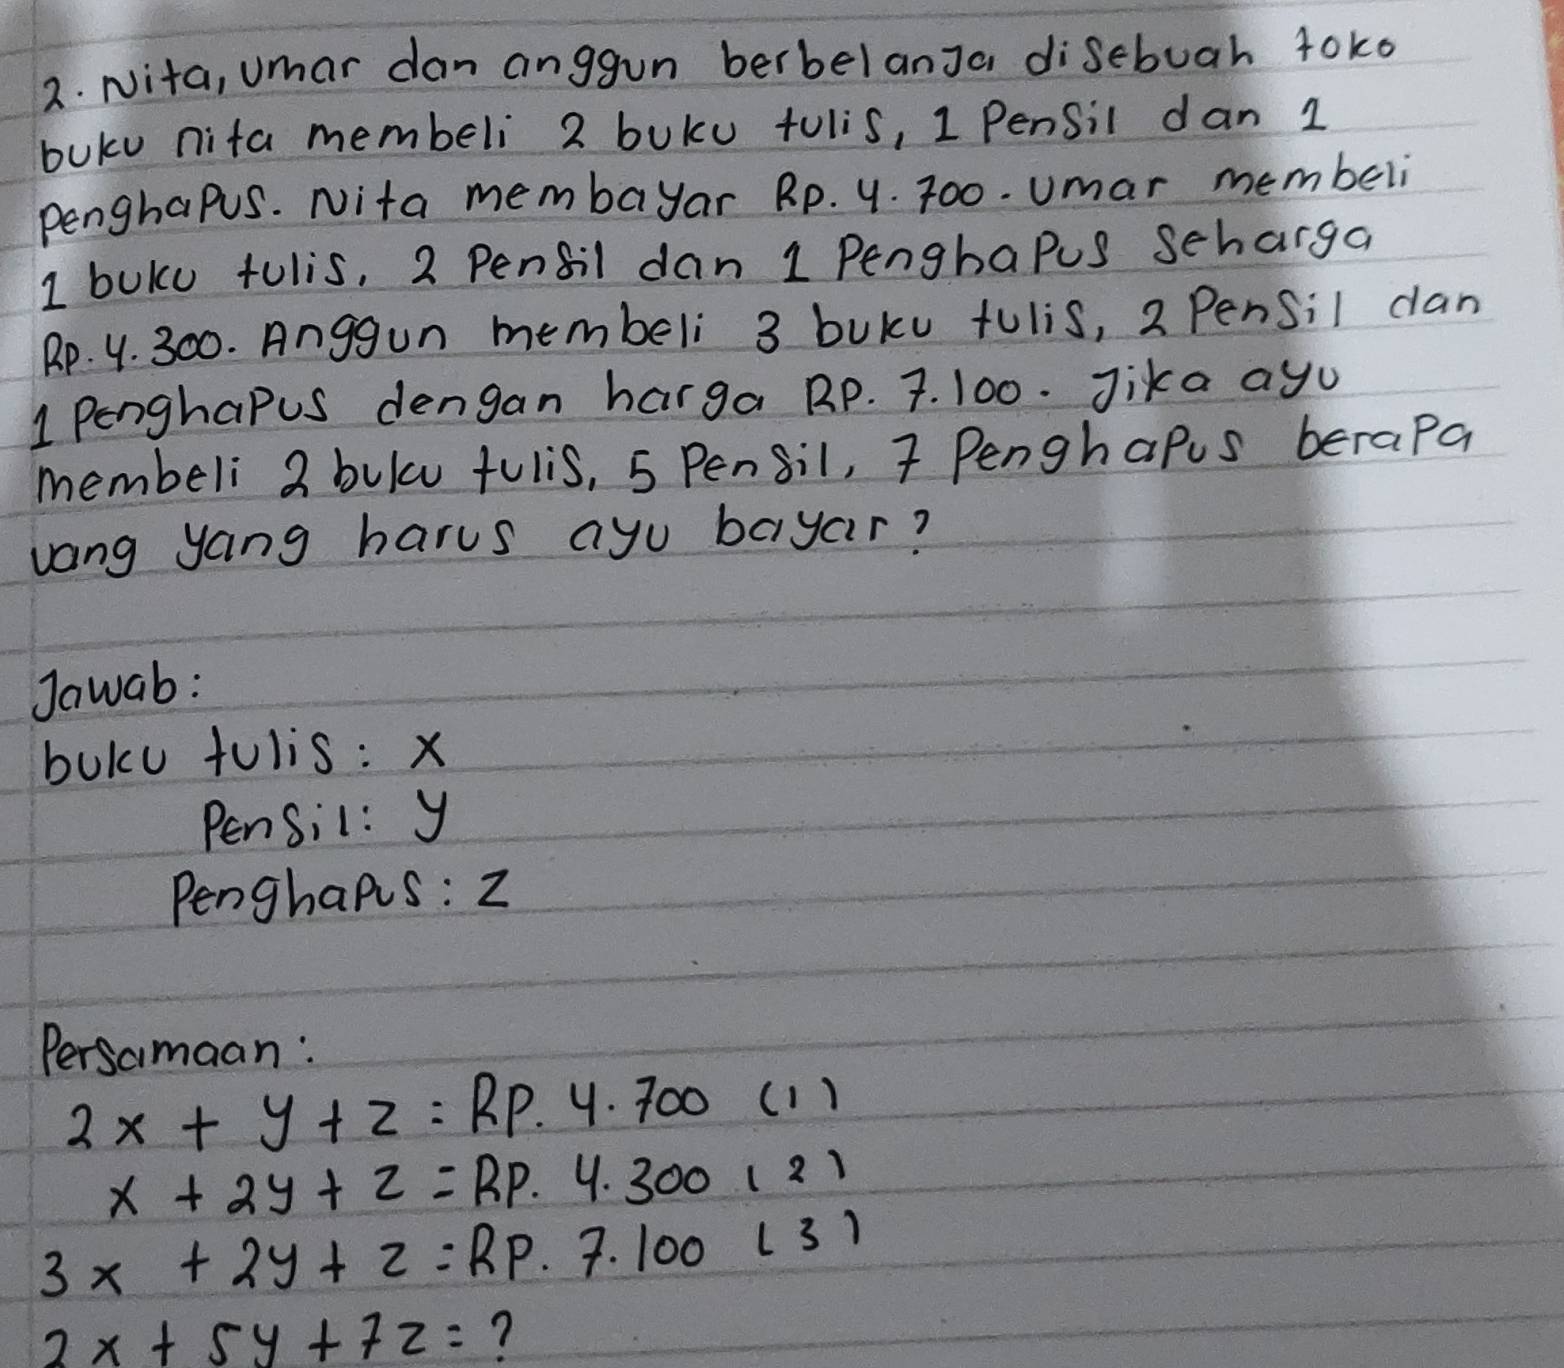 2. Nita, umar dan anggun berbelanja disebuah toko
buku nita membeli 2 buku tulis, 1 Pensil dan 1
penghapus. Nita membayar Rp. 4.700. Umar membeli
1 buku tulis, 2 Pensil dan 1 Penghapus seharga
Rp. 4.300. Anggun membeli 3 buku tulis, 2 Pensil dan
1 Penghapus dengan harga Rp. 7.100. Jika ayu
membeli 2 buku tulis, 5 Pensil, 7 Penghapus berapa
uang yang harus ayu bayar?
Jawab:
buku tulis: x
Pensil: y
Penghapus: z
Persamaan:
2x + y + z = Rp. 4.700 (1)
x + 2y + z = Rp. 4.300 (2)
3x + 2y + z = Rp. 7.100 (3)
2x + 5y + 7z = ?